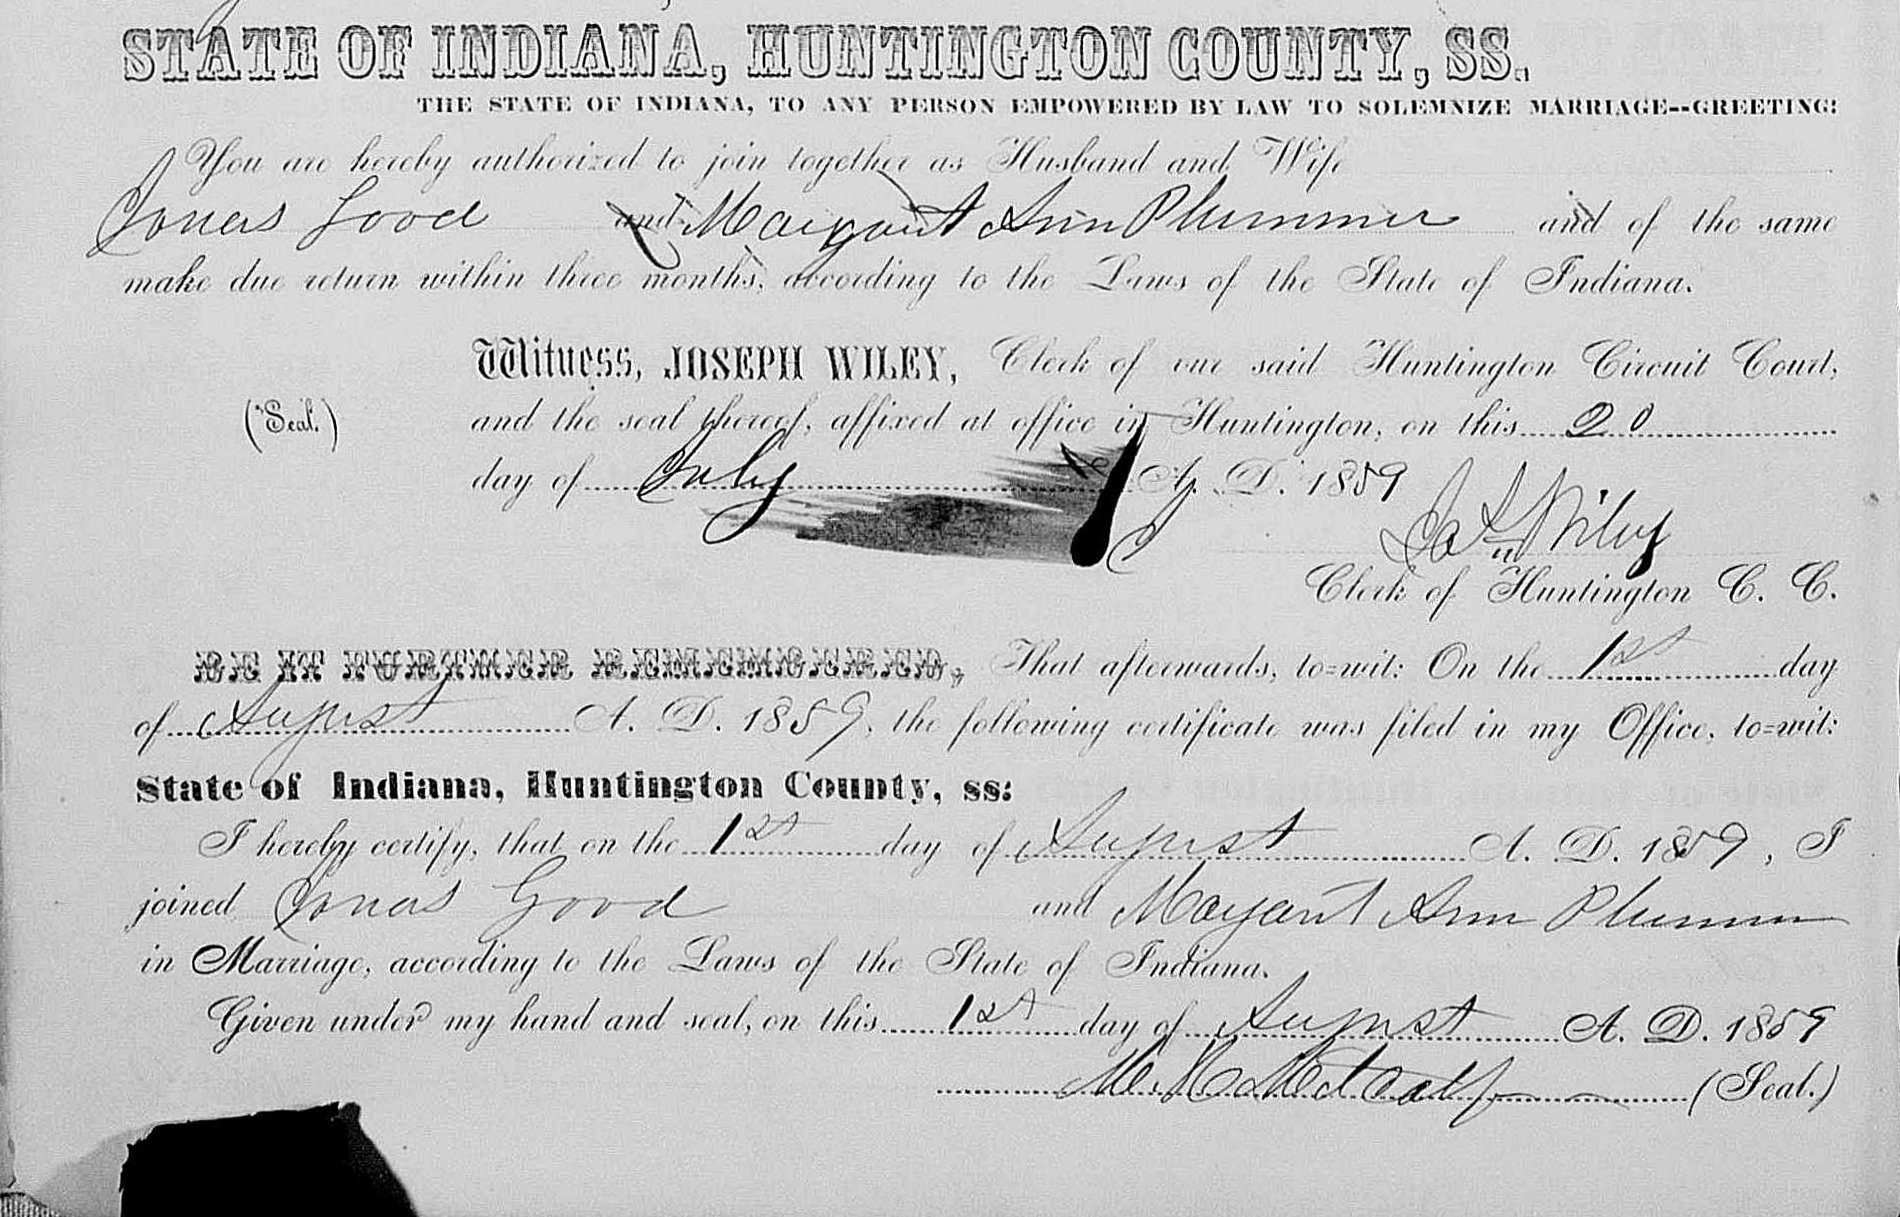 STATE OF INDIANA, HUNTINGTON COUNTY, SS.
THE STATE OF INDIANA, TO ANY PERSON EMPOWERED BY LAW TO SOLEMNIZE MARRIAGE--GREETING:
You are hereby authorized to join together as Husband and Wife
Jonas Good and Margaret Ann Plummer and of the same
make due return within three months, according to the Laws of the State of Indiana.
Witness, JOSEPH WILEY, Clerk of our said Huntington Circuit Court,
(Seal.) and the seal thereof, affixed at office in Huntington, on this 20
day of July A. D. 1859
Jos Wiley
Clerk of Huntington C. C.
BE IT FURTHER REMEMBERED, That afterwards, to=wit: On the 1st day
of August A. D. 1859, the following certificate was filed in my Office, to=wit:
State of Indiana, Huntington County, ss:
I hereby certify, that on the 1st day of August A. D. 1859, I
joined Jonas Good and Margaret Ann Plummer
in Marriage, according to the Laws of the State of Indiana.
Given under my hand and seal, on this 1st day of August A. D. 1859
Metcalf (Seal.)